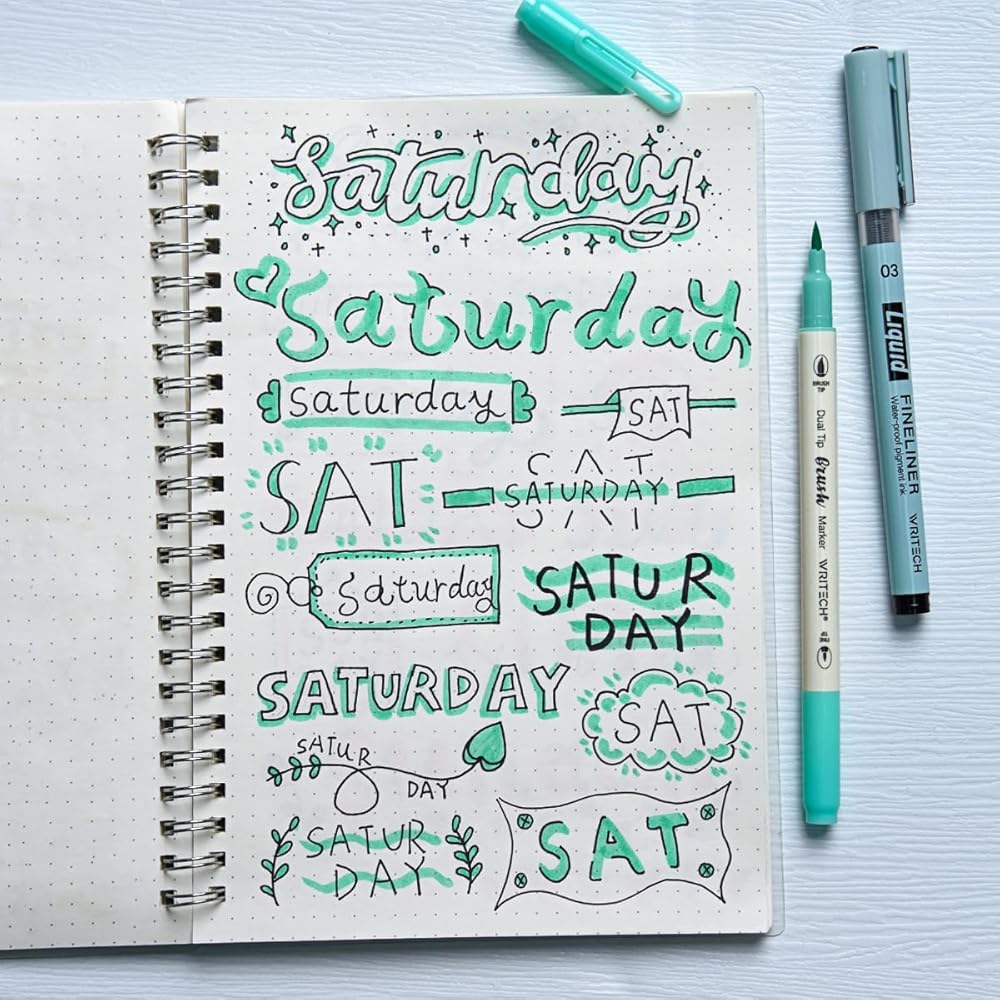 Saturday
Saturday
saturday
SAT
SAT
SAT
SATURDAY
Saturday
SATUR
DAY
SATURDAY
SAT
SATUR
DAY
SATUR
DAY
SAT
BRUSH
TIP
Dual Tip Brush Marker WRITECH®
03
Liquid
FINELINER
Water-proof pigment ink
WRITECH